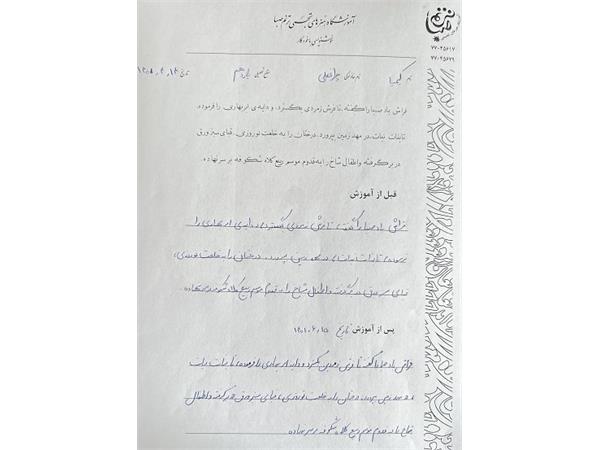 آموزشگاه هنرهای تجسمی ترنم صبا
۷۷۰۲۵۶۱۷
۷۷۰۲۵۶۲۹
نام کیمیا نام خانوادگی سطح تحصیل یازدهم تاریخ
فراش باد صبا را گفته، تا فرش زمردی بگسترد و دایه‌ی ابر بهاری را فرموده،
تا بنات نبات، در مهد زمین بپرورد. درختان را به خلعت نوروزی، قبای سبز ورق
در بر گرفته و اطفال شاخ را به قدوم موسم ربیع کلاه شکوفه بر سر نهاده.
قبل از آموزش
فراش باد صبا را گفته، تا فرش زمردی گسترد و دایه‌ی ابر بهاری را
فرموده تا بنات نبات در مهد زمین بپرورد. درختان را به خلعت نوروزی،
قبای سبز ورق در بر گرفته و اطفال شاخ را به قدوم موسم ربیع کلاه شکوفه بر سر نهاده.
پس از آموزش تاریخ ۱۴۰۱.۶.۱۵
فراش باد صبا را گفته تا فرش زمردی بگسترد و دایه ابر بهاری را فرموده تا بنات نبات
در مهد زمین بپرورد درختان را به خلعت نوروزی، قبای سبز ورق در بر گرفته و اطفال
شاخ را به قدوم موسم ربیع کلاه شکوفه بر سر نهاده